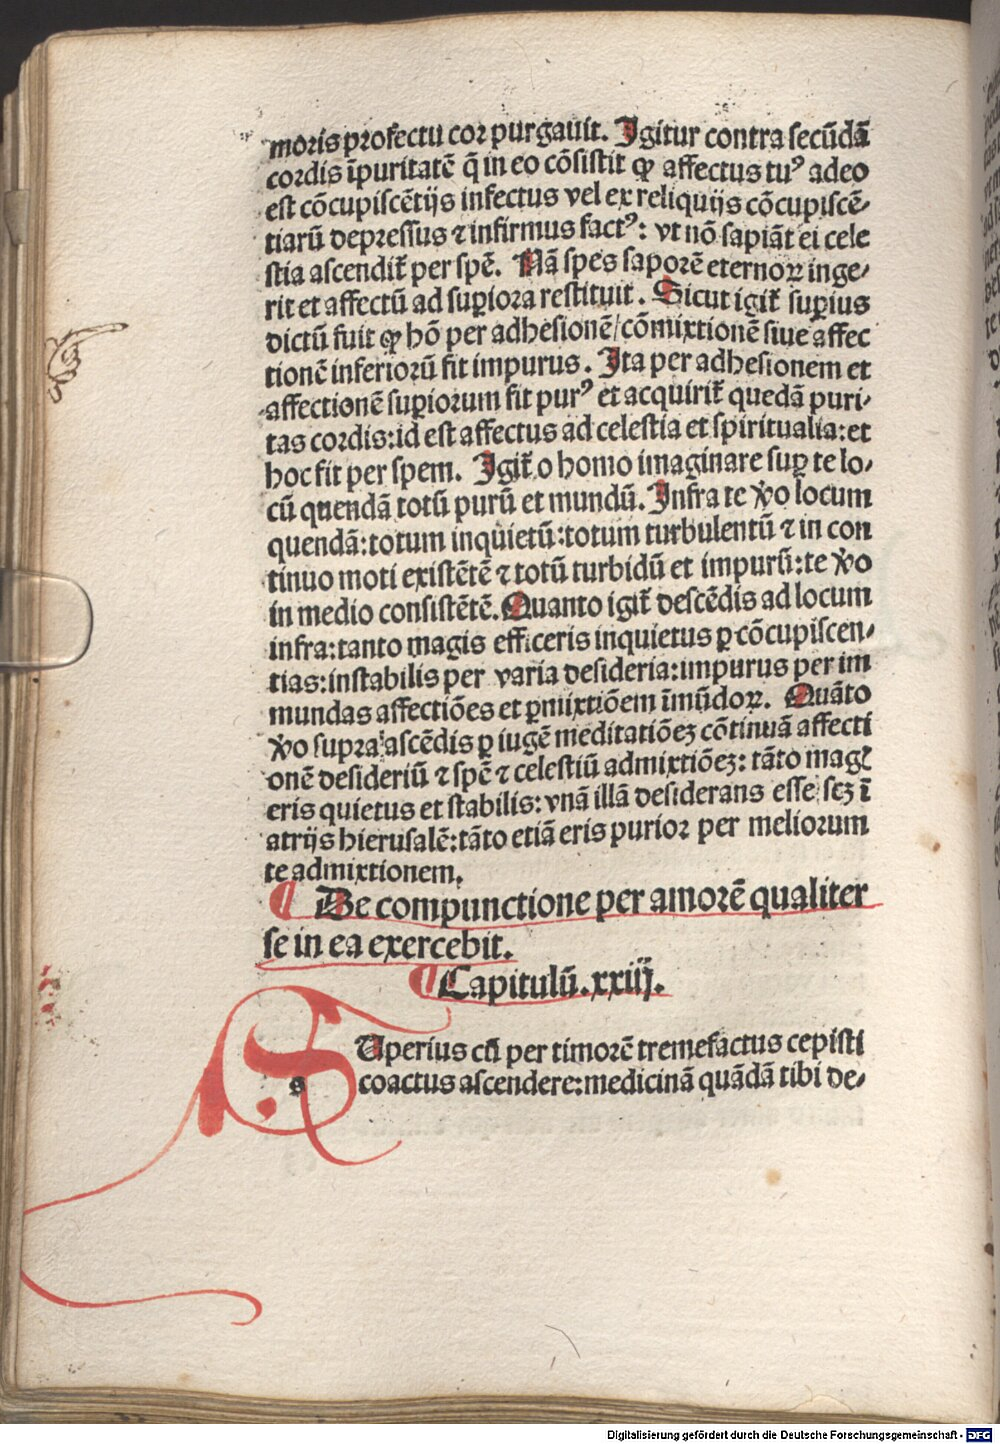 moris profectu cor purgauit. Igitur contra secũdã
cordis ĩpuritatẽ q̃ in eo cõsistit ꝙ affectus tuꝰ adeo
est cõcupiscẽtijs infectus vel ex reliquijs cõcupiscẽ-
tiarũ depressus ⁊ infirmus factꝰ: vt nõ sapiãt ei cele
stia ascendit᷑ per spẽ. Nã spes saporẽ eternoꝝ inge-
rit et affectũ ad suꝑiora restituit. Sicut igit᷑ suꝑius
dictũ fuit ꝙ hõ per adhesionẽ/cõmixtionẽ siue affec
tionẽ inferiorũ fit impurus. Ita per adhesionem et
affectionẽ suꝑiorum fit purꝰ et acquirit᷑ quedã puri-
tas cordis: id est affectus ad celestia et spiritualia: et
hoc fit per spem. Igit᷑ o homo imaginare suꝑ te lo-
cũ quendã totũ purũ et mundũ. Infra te v̾o locum
quendã: totum inquietũ: totum turbulentũ ⁊ in con
tinuo moti existẽtẽ ⁊ totũ turbidũ et impurũ: te v̾o
in medio consistẽtẽ. Quanto igit᷑ descẽdis ad locum
infra: tanto magis efficeris inquietus ꝑ cõcupiscen-
tias: instabilis per varia desideria: impurus per im
mundas affectiões et ꝑmixtiõem ĩmũdoꝝ. Quãto
v̾o supra ascẽdis ꝑ iugẽ meditatiõeꝫ cõtinuã affecti
onẽ desideriũ ⁊ spẽ ⁊ celestiũ admixtiõeꝫ: tãto magꝭ
eris quietus et stabilis: vnã illã desiderans esse scꝫ ĩ
atrijs hierusalẽ: tãto etiã eris purior per meliorum
te admixtionem.
¶ De compunctione per amorẽ qualiter
se in ea exercebit.
¶ Capitulũ. xxiij.
S
s
Uperius cũ per timorẽ tremefactus cepisti
coactus ascendere: medicinã quãdã tibi de-
Digitalisierung gefördert durch die Deutsche Forschungsgemeinschaft - DFG